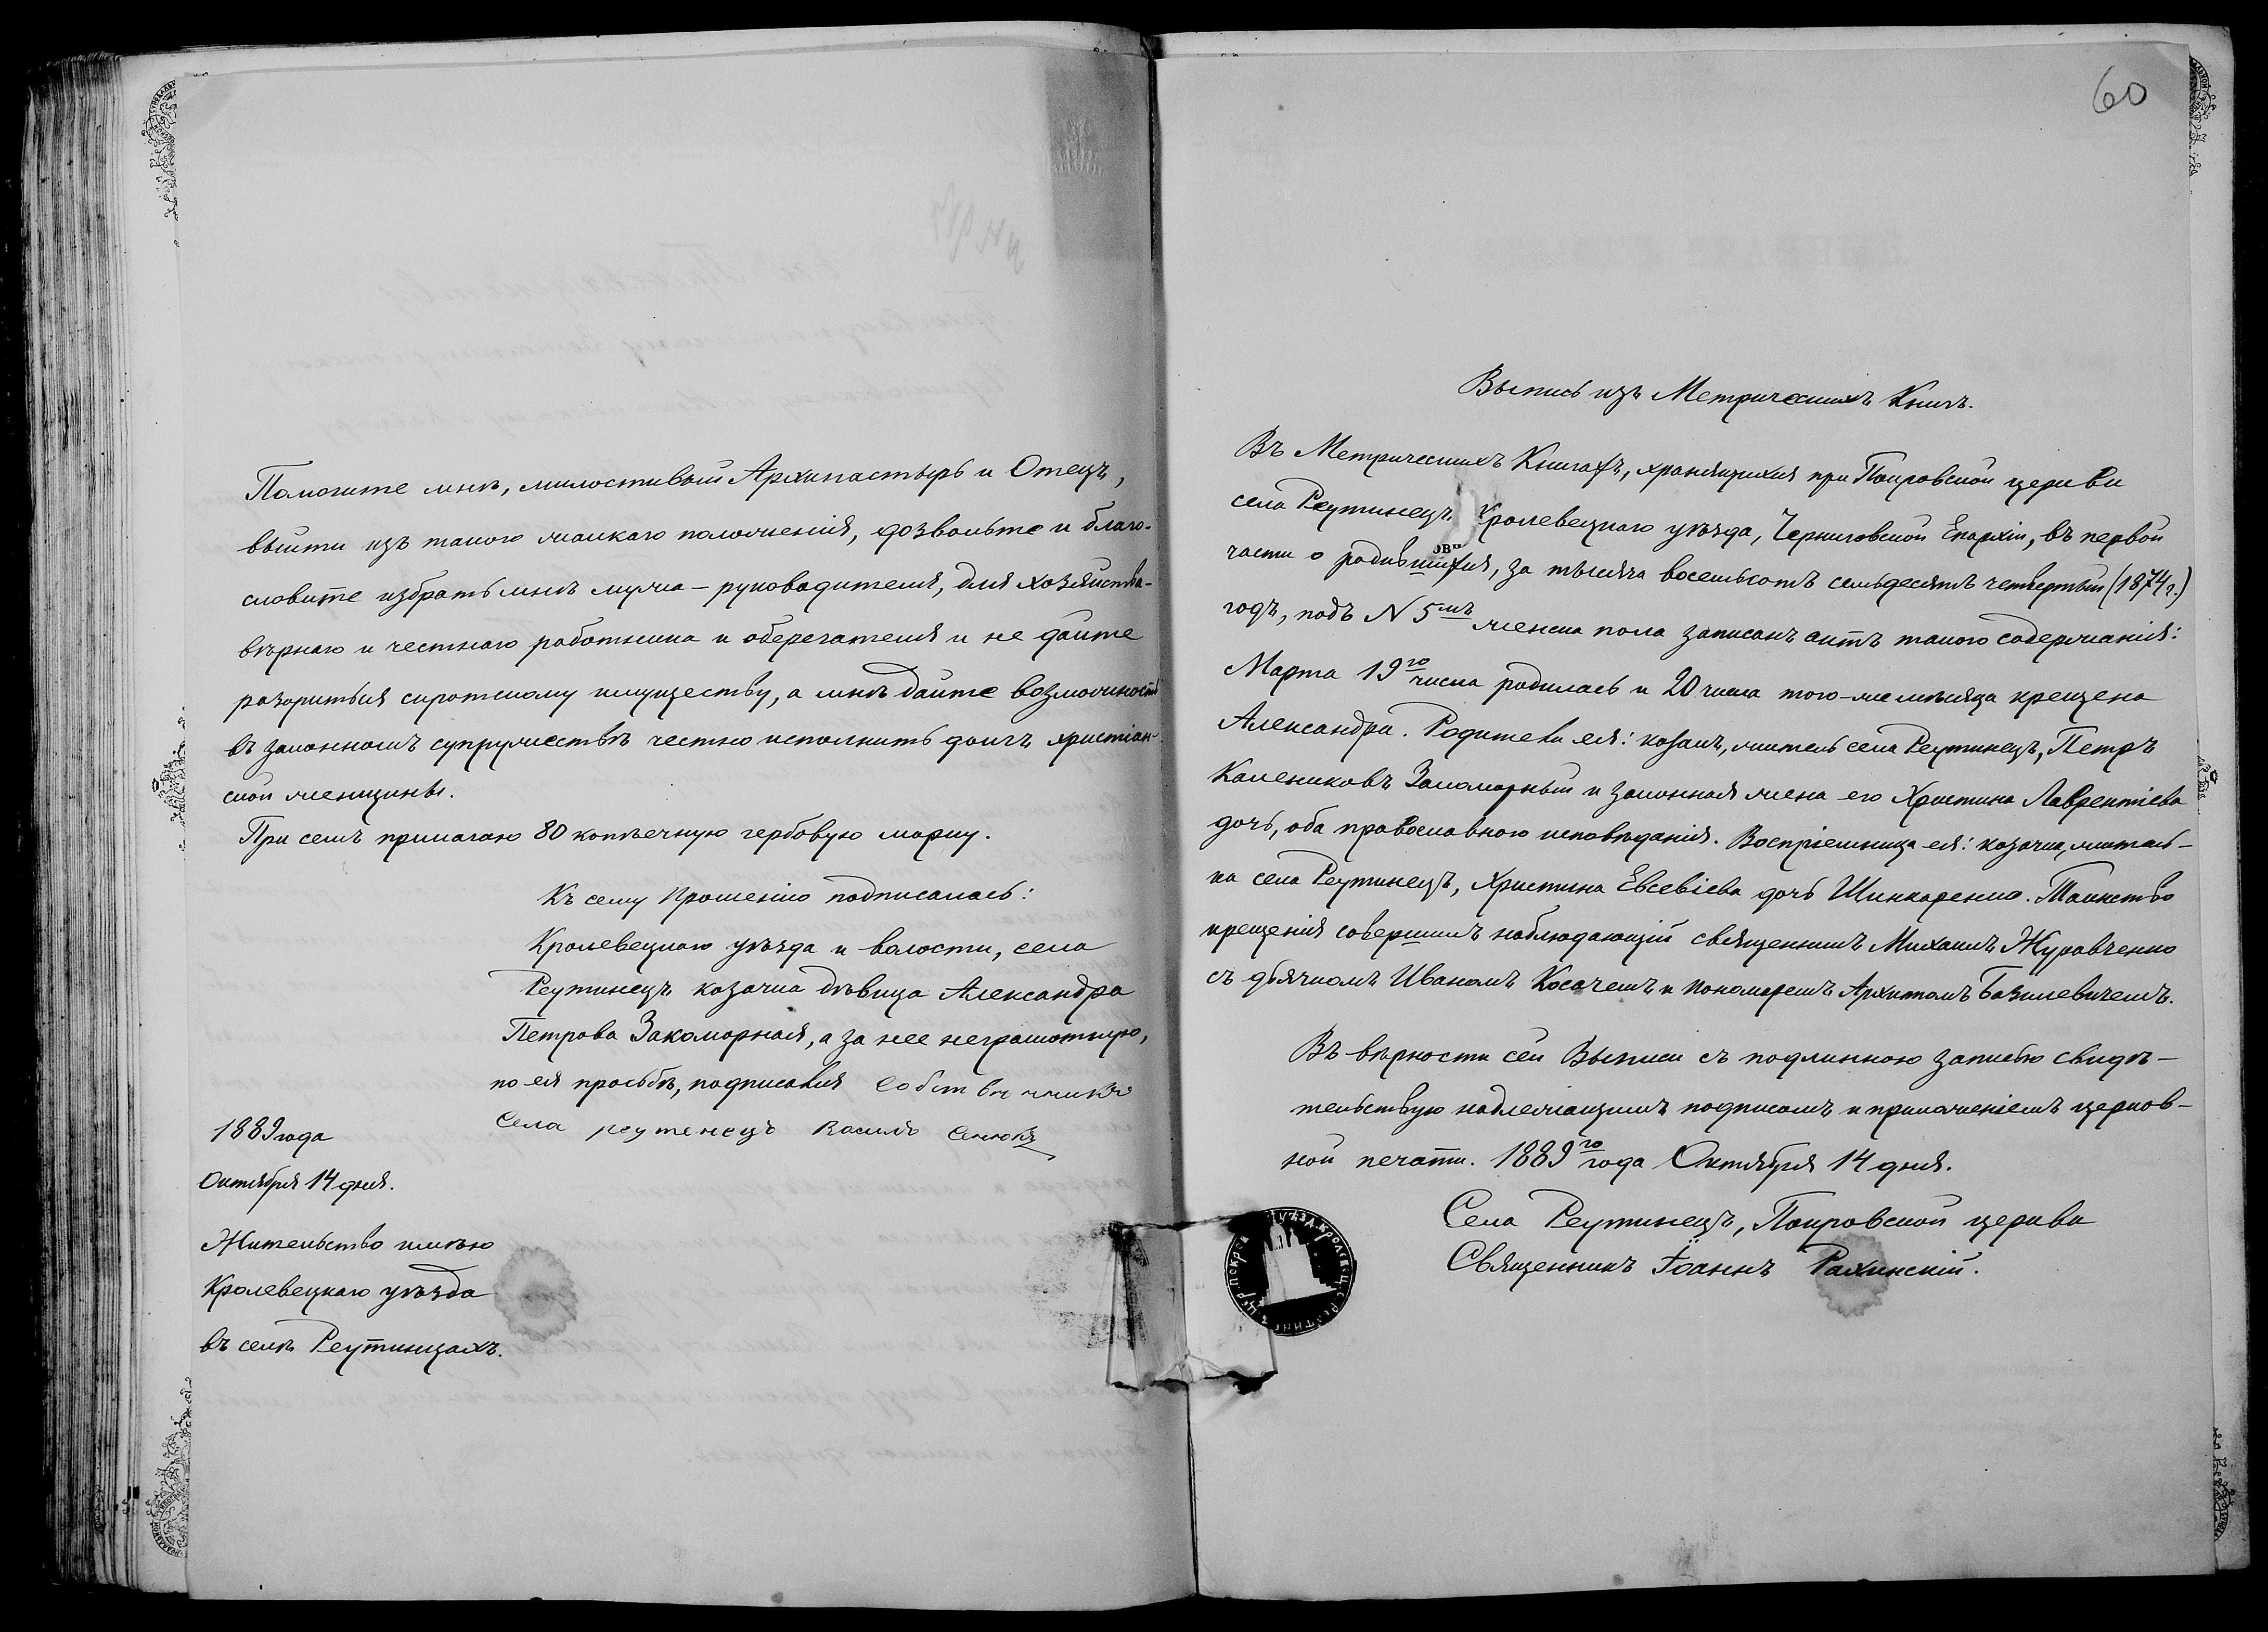 Помогите мнѣ, милостивый Архипастырь и Отецъ,
выйти изъ такого жалкаго положенія, дозвольте и благо-
словите избрать мнѣ мужа-руководителя, для хозяйства-
вѣрнаго и честнаго работника и оберегателя и не дайте
разориться сиротскому имуществу, а мнѣ дайте возможность
въ законномъ супружествѣ честно исполнить долгъ христіан-
ской женщины.
При семъ прилагаю 80 копѣечную гербовую марку.
Къ сему прошенію подписалась:
Кролевецкаго уѣзда и волости, села
Реутинецъ козачка дѣвица Александра
Петрова Закоморная, а за нее неграмотную,
по ея просьбѣ, подписался Собственникъ
Села реутенецъ Василь Сенюкъ
1889 года
Октября 14 дня.
Жительство имѣю
Кролевецкаго уѣзда
въ селѣ Реутинцахъ.
60
Выпись изъ Метрическихъ Книгъ.
Въ Метрическихъ Книгахъ, хранящихся при Покровской церкви
села Реутинецъ Кролевецкаго уѣзда, Черниговской Епархіи, въ первой
части о родившихся, за тысяча восемьсотъ семьдесятъ четвертый (1874 г.)
годъ, подъ N 5мъ женска пола записанъ актъ такого содержанія:
Марта 19го числа родилась и 20 числа того-же мѣсяца крещена
Александра. Родители ея: козакъ, житель села Реутинецъ, Петръ
Калениковъ Закоморный и законная жена его Христина Лаврентіева
дочь, оба православнаго исповѣданія. Воспріемница ея: козачка, житель-
ка села Реутинецъ, Христина Евсевіева дочь Шинкаренко. Таинство
крещенія совершилъ наблюдающій священникъ Михаилъ Журавченко
съ дьячкомъ Иваномъ Косачемъ и пономаремъ Архипомъ Базилевичемъ.
Въ вѣрности сей Выписи съ подлинною записью свидѣ-
тельствую надлежащимъ подписомъ и приложеніемъ церков-
ной печати. 1889го года Октября 14 дня.
Села Реутинецъ, Покровской церкви
Священникъ Іоаннъ Рахинскій.